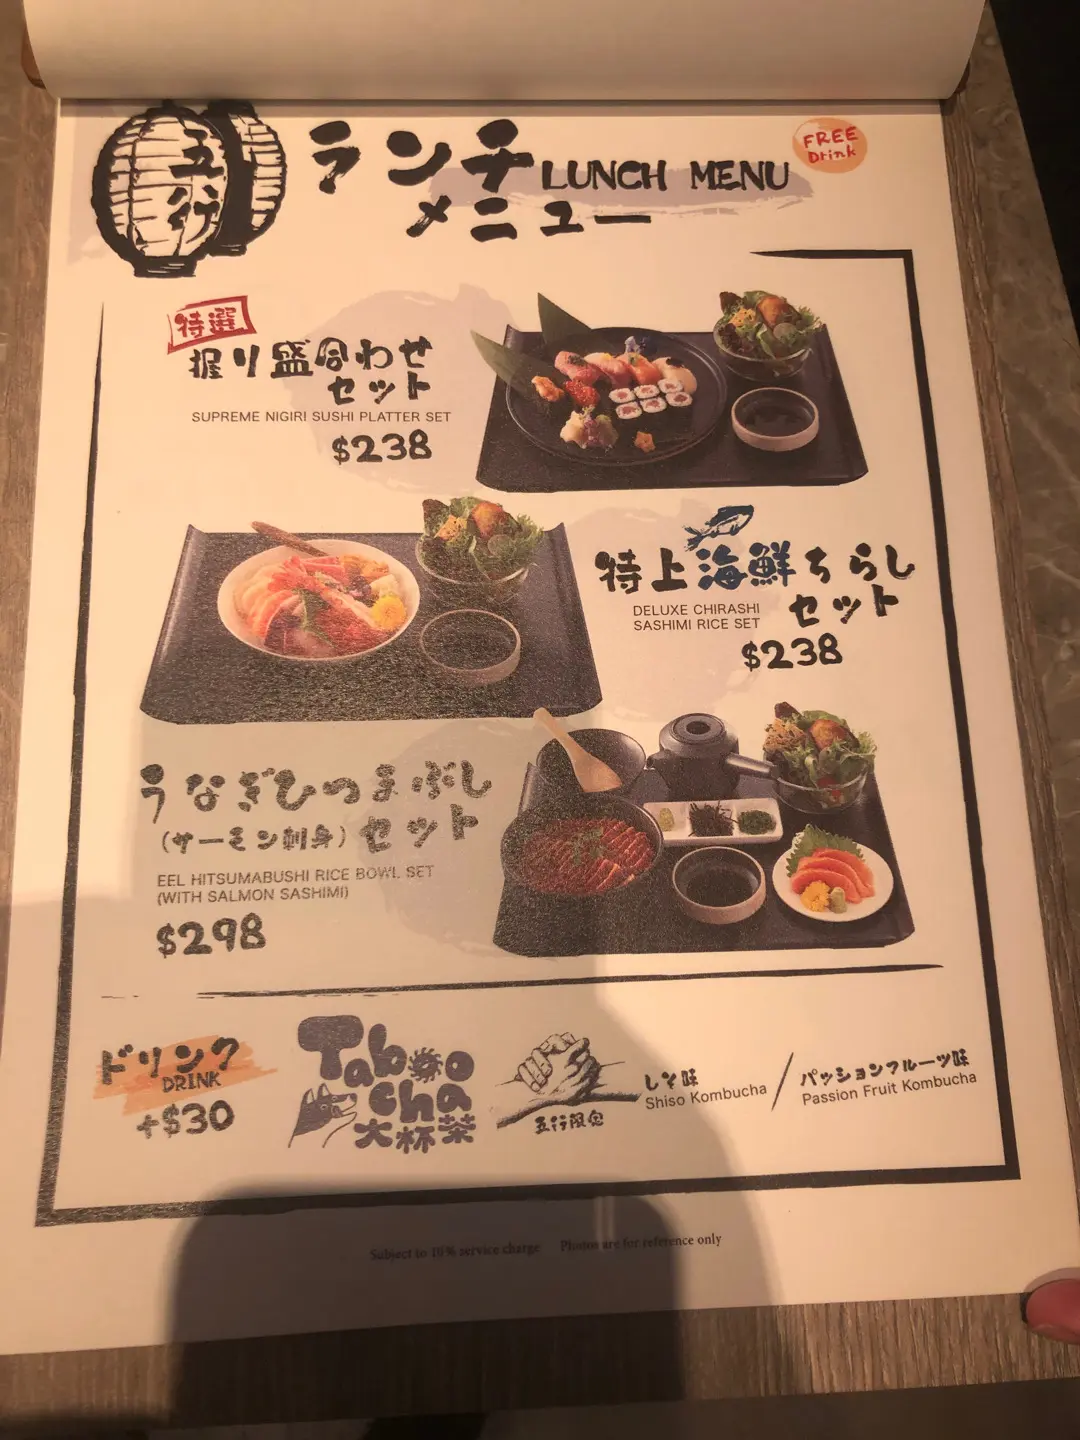 五行
ランチ LUNCH MENU
メニュー
FREE
Drink
特選
握り盛合わせ
セット
SUPREME NIGIRI SUSHI PLATTER SET
$238
特上海鮮ちらし
セット
DELUXE CHIRASHI
SASHIMI RICE SET
$238
うなぎひつまぶし
(サーモン刺身)セット
EEL HITSUMABUSHI RICE BOWL SET
(WITH SALMON SASHIMI)
$298
ドリンク
DRINK
+$30
Taboo
cha
大杯茶
五行限定
しそ味
Shiso Kombucha
/
パッションフルーツ味
Passion Fruit Kombucha
Subject to 10% service charge Photos are for reference only